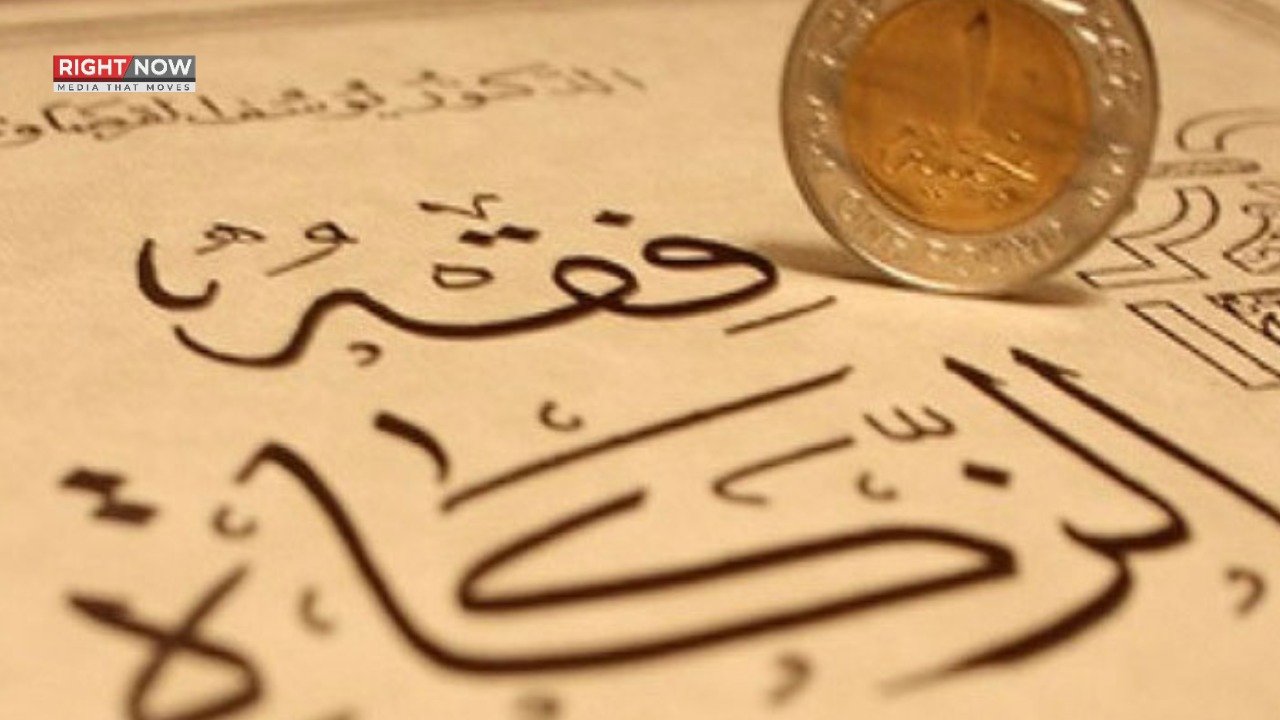 RIGHT NOW
MEDIA THAT MOVES
الدكتور يوسف
فقه
الزكاة